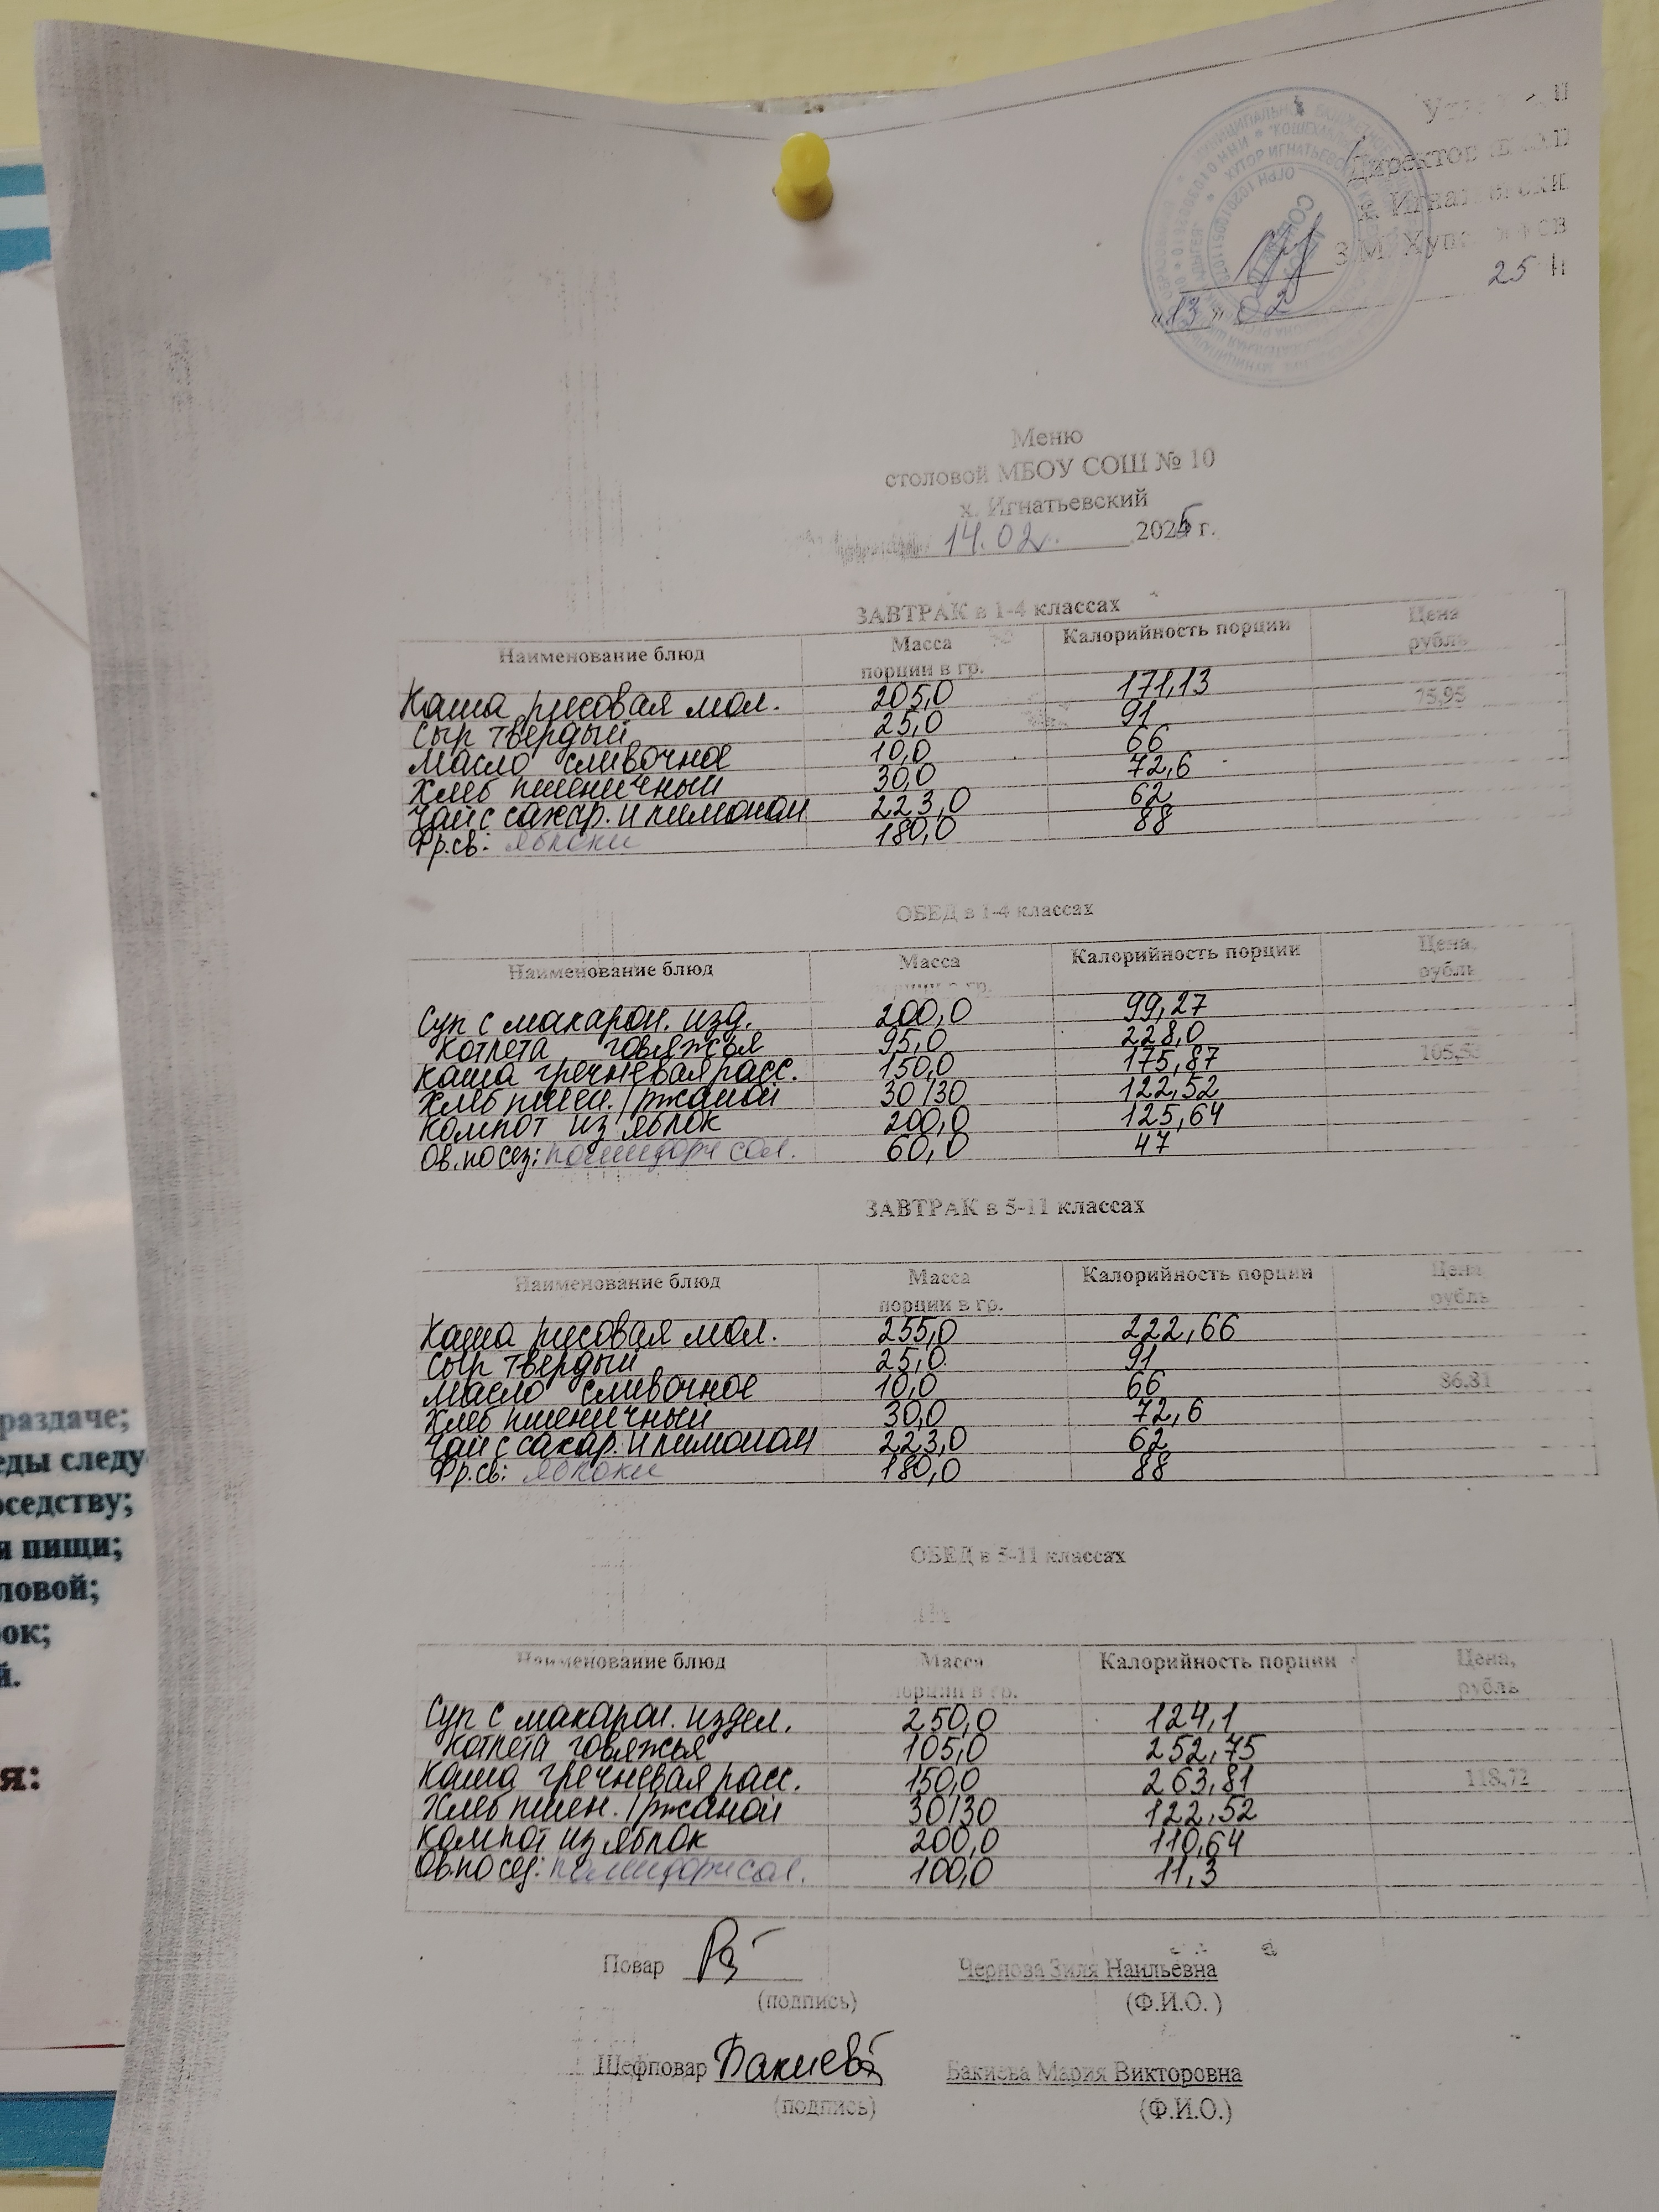 Директор
х. Игнатьевский
З.М.
"13" 02 25
Меню
столовой МБОУ СОШ № 10
х. Игнатьевский
14.02. 2025 г.
ЗАВТРАК в 1-4 классах
Наименование блюд Масса порции в гр. Калорийность порции Цена рубль
Каша рисовая мол. 205,0 171,13 75,95
Сыр твердый 25,0 91
Масло сливочное 10,0 66
Хлеб пшеничный 30,0 72,6
Чай с сахар. и лимоном 223,0 62
Фр.св: яблоки 180,0 88
ОБЕД в 1-4 классах
Наименование блюд Масса порции в гр. Калорийность порции Цена, рубль
Суп с макарон. изд. 200,0 99,27
Котлета говяжья 95,0 228,0
Каша гречневая расс. 150,0 175,87
Хлеб пшен. / ржаной 30/30 122,52
Компот из яблок 200,0 125,64
Ов.по сез: помидоры сол. 60,0 47
ЗАВТРАК в 5-11 классах
Наименование блюд Масса порции в гр. Калорийность порции Цена рубль
Каша рисовая мол. 255,0 222,66
Сыр твердый 25,0 91
Масло сливочное 10,0 66 86.81
Хлеб пшеничный 30,0 72,6
Чай с сахар. и лимоном 223,0 62
Фр.св: яблоки 180,0 88
ОБЕД в 5-11 классах
Наименование блюд Масса порции в гр. Калорийность порции Цена, рубль
Суп с макарон. издел. 250,0 124,1
Котлета говяжья 105,0 252,75
Каша гречневая расс. 150,0 263,81 118,72
Хлеб пшен. / ржаной 30/30 122,52
Компот из яблок 200,0 110,64
Ов.по сез: помидоры сол. 100,0 11,3
Повар Чернова Зиля Наильевна
(подпись) (Ф.И.О.)
Шефповар Бакиева Бакиева Мария Викторовна
(подпись) (Ф.И.О.)
раздаче;
еды следу
оседству;
я пищи;
ловой;
рок;
й.
я: